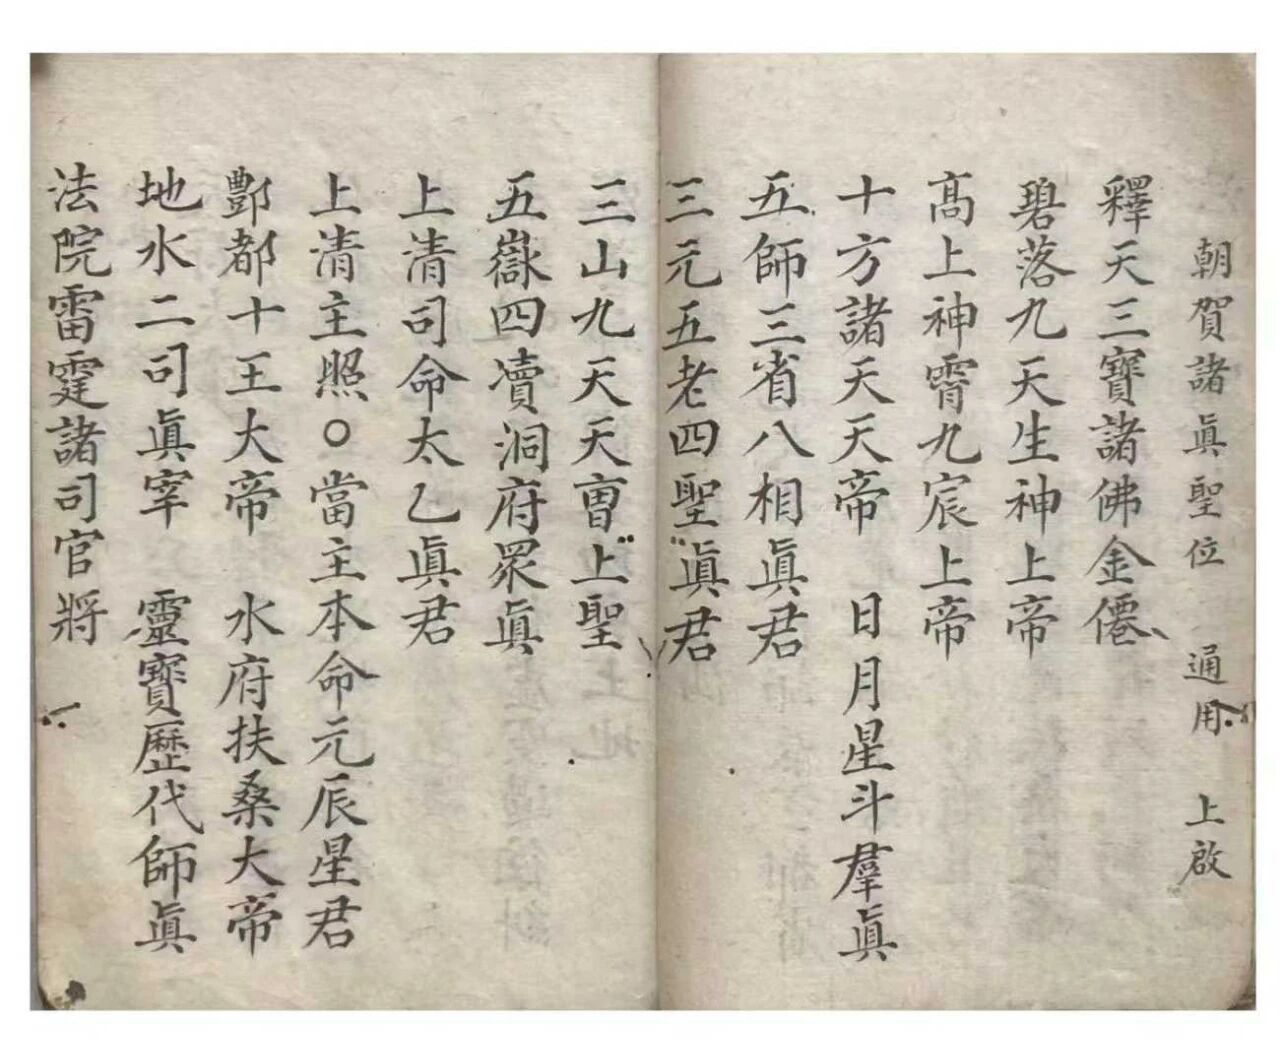 朝賀諸眞聖位 通用 上啟
釋天三寶諸佛金僊
碧落九天生神上帝
高上神霄九宸上帝
十方諸天天帝 日月星斗羣眞
五師三省八相眞君
三元五老四聖眞君
三山九天天曺上聖
五嶽四瀆洞府眾眞
上清司命太乙眞君
上清主照〇當主本命元辰星君
酆都十王大帝 水府扶桑大帝
地水二司眞宰 靈寶歷代師眞
法院雷霆諸司官將